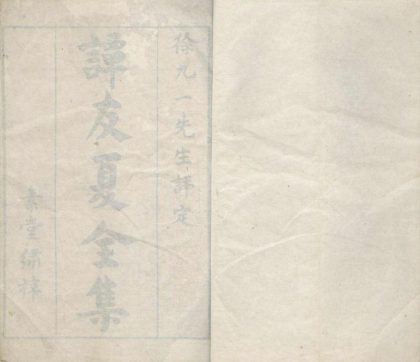 徐九一先生評定
譚友夏全集
堂梓